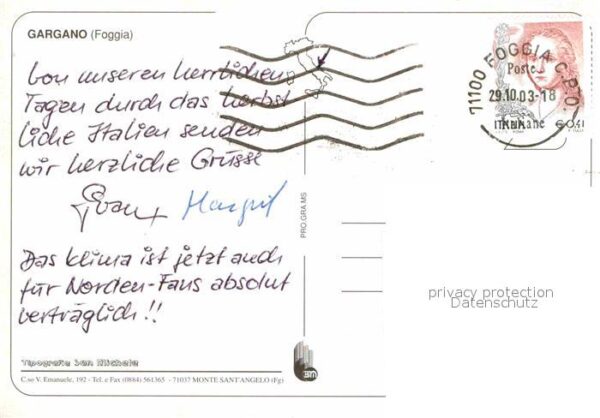 GARGANO (Foggia)
Von unseren herrlichen
Tagen durch das herbst
liche Italien senden
wir herzliche Grüsse
Margrit
Das Klima ist jetzt auch
für Norden-Fans absolut
verträglich!!
Tipografia San Michele
C.so V. Emanuele, 192 - Tel. e Fax (0884) 561365 - 71037 MONTE SANT'ANGELO (Fg)
PRO.GRA MS
71100 FOGGIA C.P.O.
Poste
29.10.03-18
Italiane
€0,41
privacy protection
Datenschutz